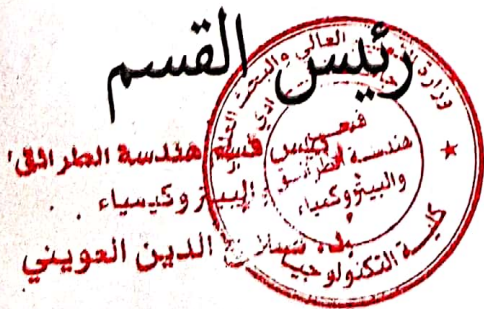 رئيس القسم
رئيس قسم هندسة الطرائق
البيتروكيمياء
الدين العويني
وزارة العالي والبحث
قسم
هندسة الطرائق
والبيتروكمياء
كلية التكنولوجيا